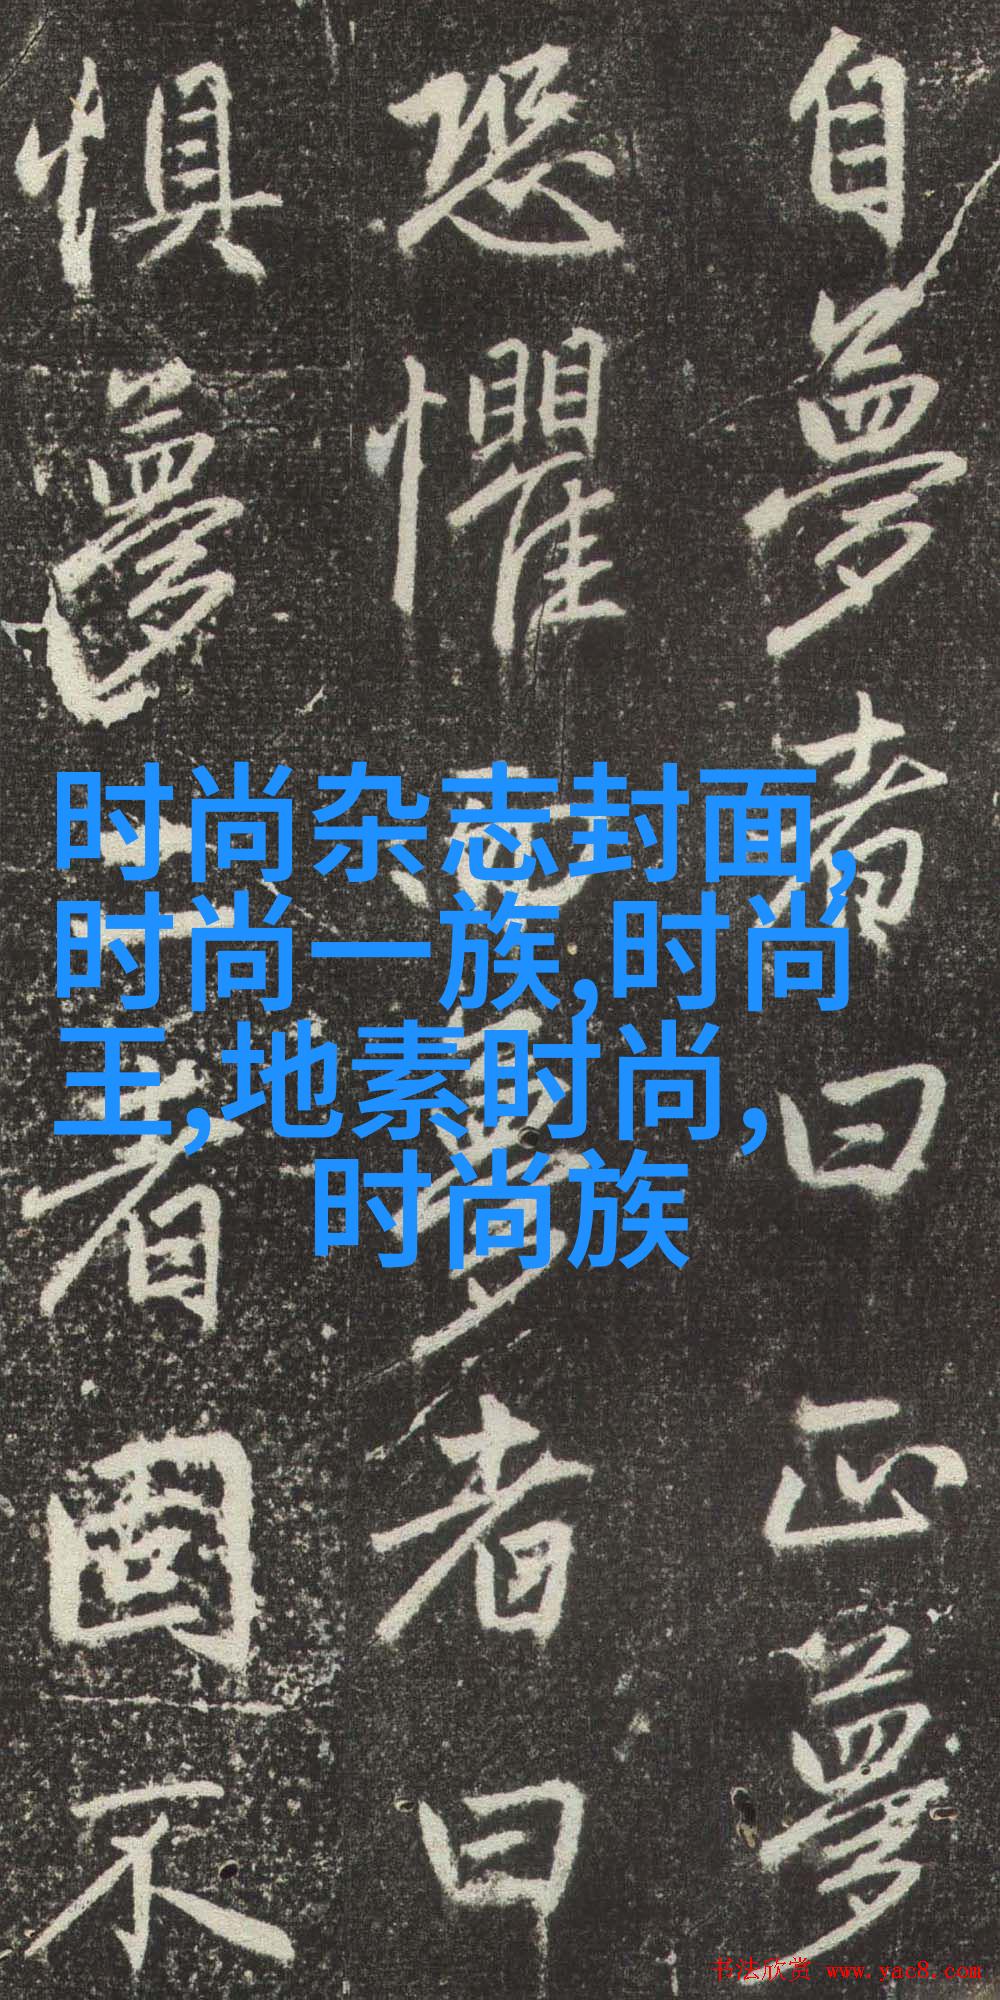 自夢者曰正夢
恐懼而夢者曰
惧夢二者固不
时尚杂志封面,
时尚一族,时尚
王,地素时尚,
时尚族
书法欣赏 www.yac8.com